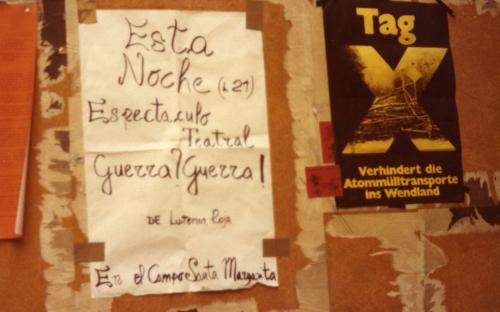 Esta
Noche (L 21)
Espectaculo
Teatral
Guerra? Guerra!
DE Luterun Roja
En el Campo Santa Margarita
Tag
X
Verhindert die
Atommülltransporte
ins Wendland